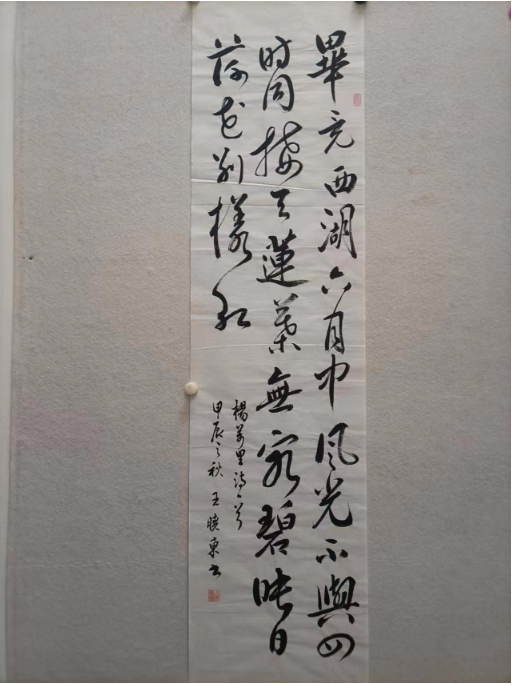 畢竟西湖六月中風光不與四
時同接天蓮葉無窮碧映日
荷花別樣紅
楊萬里詩一首
甲辰之秋王曉東书